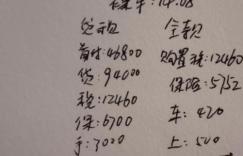 14.08
贷款 全款
首付:46800 购置税:12460
贷:94000 保险:5752
税:12460 车:420
保:6700 上:500
手:3000